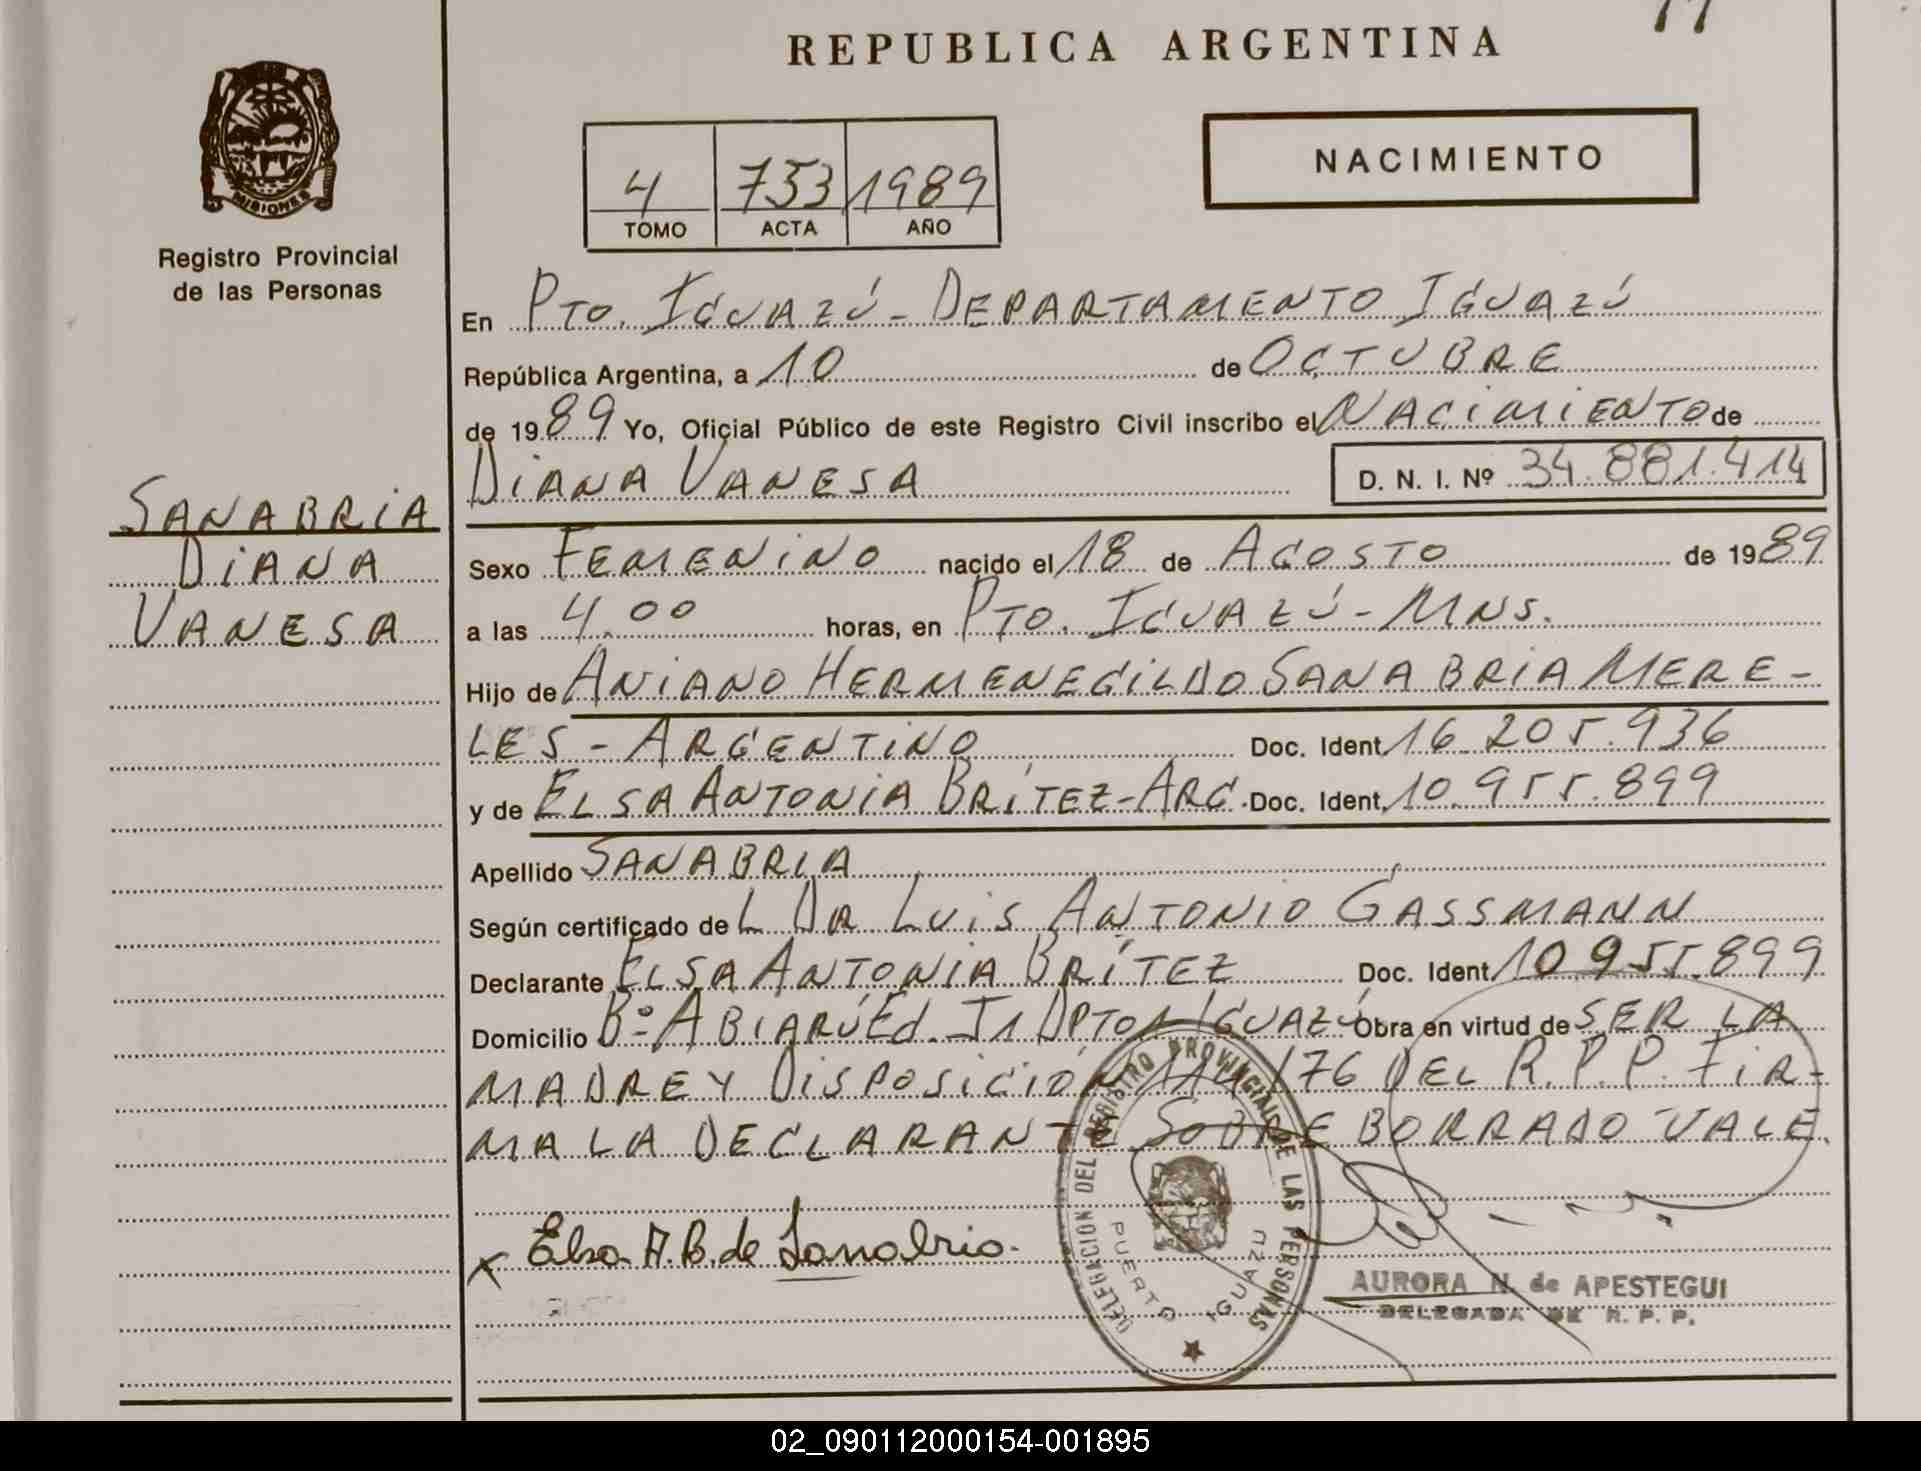 REPUBLICA ARGENTINA
MISIONES
Registro Provincial
de las Personas
4 753 1989
TOMO ACTA AÑO
NACIMIENTO
En Pto. Iguazú - Departamento Iguazú
República Argentina, a 10 de Octubre
de 1989 Yo, Oficial Público de este Registro Civil inscribo el Nacimiento de
Diana Vanesa D. N. I. Nº 34.881.414
SANABRIA
DIANA
VANESA
Sexo Femenino nacido el 18 de Agosto de 1989
a las 4.00 horas, en Pto. Iguazú - Mns.
Hijo de Aniano Hermenegildo Sanabria Mere-
les - Argentino Doc. Ident. 16.205.936
y de Elsa Antonia Brítez - Arg. Doc. Ident. 10.955.899
Apellido Sanabria
Según certificado de L Dr Luis Antonio Gassmann
Declarante Elsa Antonia Brítez Doc. Ident. 10.955.899
Domicilio Bº Abiarú Ed. Dpto Iguazú Obra en virtud de ser la
madre y Disposición /76 del R.P.P. Fir-
ma la declarante Sobre borrado vale.
x Elsa A. B. de Sanabria.
DELEGACION DEL REGISTRO PROVINCIAL DE LAS PERSONAS
PUERTO IGUAZU
AURORA N. de APESTEGUI
DELEGADA DE R. P. P.
02_090112000154-001895